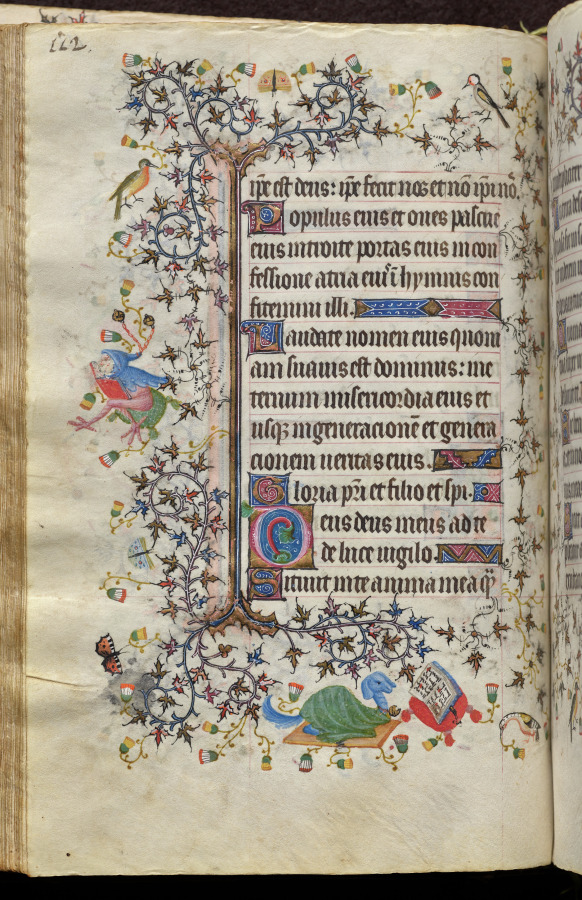 122.
ip̄e est deus: ip̄e fecit nos et nō ip̄i nō.
Populus eius et oues pascue
eius introite portas eius in con
fessione atria eiꝰ ī hymnis con
fitemini illi.
Laudate nomen eius quoni
am suauis est dominus: in e
ternum misericordia eius et
usqꝫ in generacionē et genera
cionem ueritas eius.
Gloria pr̄i et filio et sp̄i.
Deus deus meus ad te
de luce uigilo.
Sitiuit in te anima mea qͣ̄